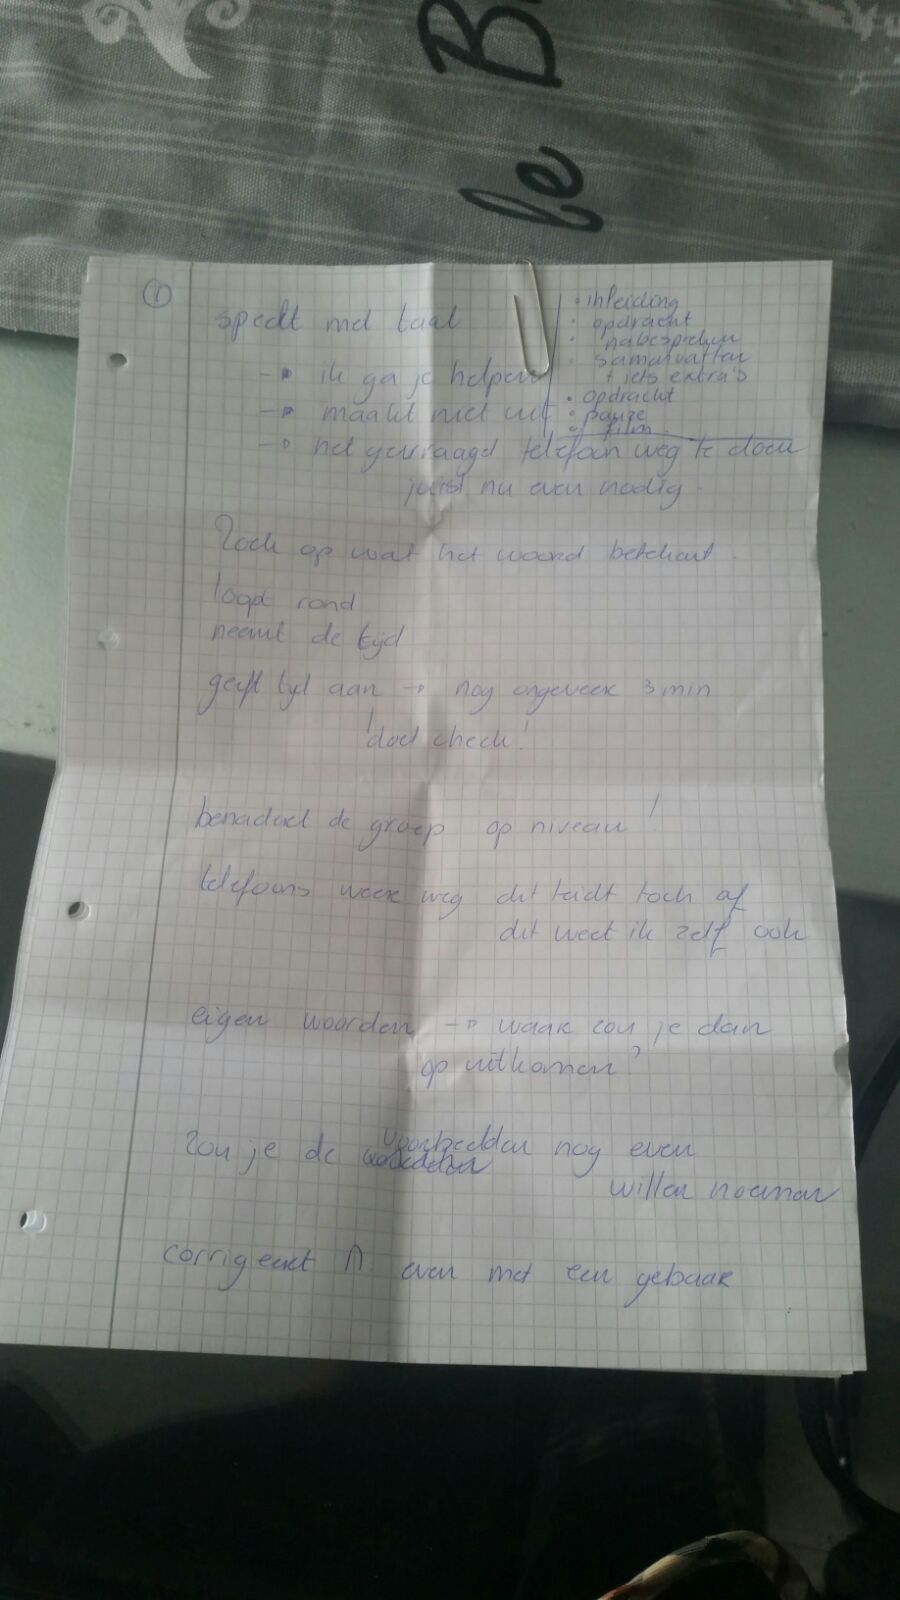 le B
①
speelt met taal
-> ik ga je helpen
-> maakt niet uit
-> net gevraagd telefoon weg te doen
juist nu even nodig.
• inleiding
• opdracht
• nabespreken
• samenvatten
+ iets extra's
• opdracht
• pauze
• film
Zoek op wat het woord betekent.
loopt rond
neemt de tijd
geeft tijd aan -> nog ongeveer 3 min
! doel check!
benadert de groep op niveau!
telefoons weer weg dit leidt toch af
dit weet ik zelf ook
eigen woorden -> waar zou je dan
op uitkomen?
zou je de voorbeelden nog even
willen noemen
corrigeert even met een gebaar